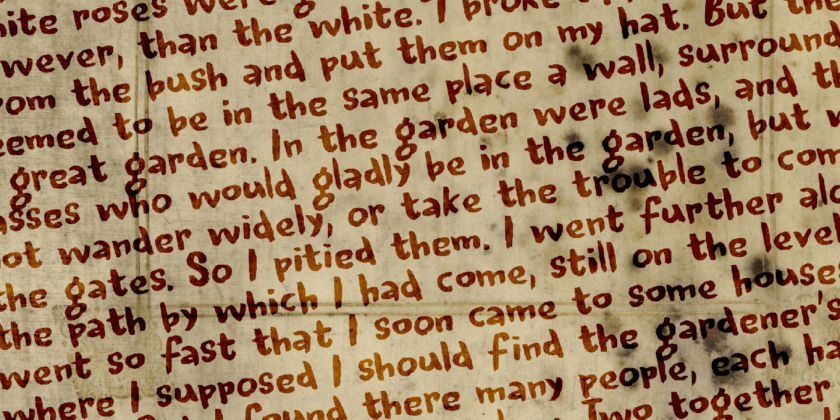 roses were
than the white. I broke
from the bush and put them on my hat. But the
seemed to be in the same place a wall, surround
great garden. In the garden were lads, and th
who would gladly be in the garden, but
not wander widely, or take the trouble to com
the gates. So I pitied them. I went further alo
the path by which I had come, still on the level
went so fast that I soon came to some houses
where I supposed I should find the gardener's
I found there many people, each ha
Two together